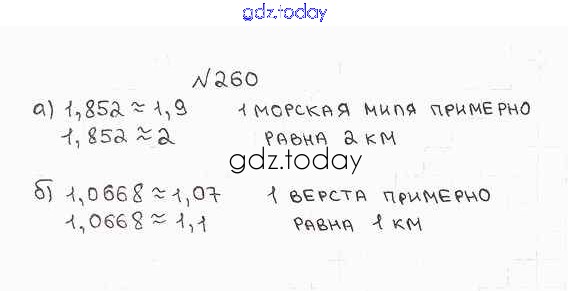 gdz.today
№260
а) 1,852 ≈ 1,9 1 морская миля примерно
1,852 ≈ 2 равна 2 км
gdz.today
б) 1,0668 ≈ 1,07 1 верста примерно
1,0668 ≈ 1,1 равна 1 км